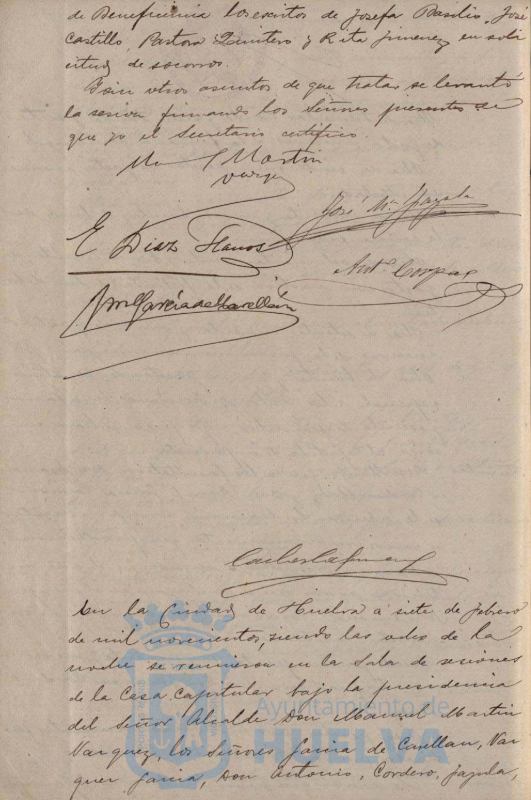 de Beneficencia los escritos de Josefa Basilio, José
Castillo, Pastora Quintero y Rita Jimenez en soli
citud de socorros.
Y sin otros asuntos de que tratar se levantó
la sesion firmando los Señores presentes de
que yo el Secretario certifico.
Martin
Vazquez
José Mª Jayula
E Diaz Llanos
Antº Corpas
García de
En la Ciudad de Huelva á siete de febrero
de mil novecientos, siendo las ocho de la
noche se reunieron en la Sala de sesiones
de la Casa Capitular bajo la presidencia
del Señor Alcalde Don Manuel Martin
Vazquez, los Señores Garcia de Cavellan, Vaz
quez Garcia, Don Antonio, Cordero, Jayula,
Ayuntamiento de
HUELVA